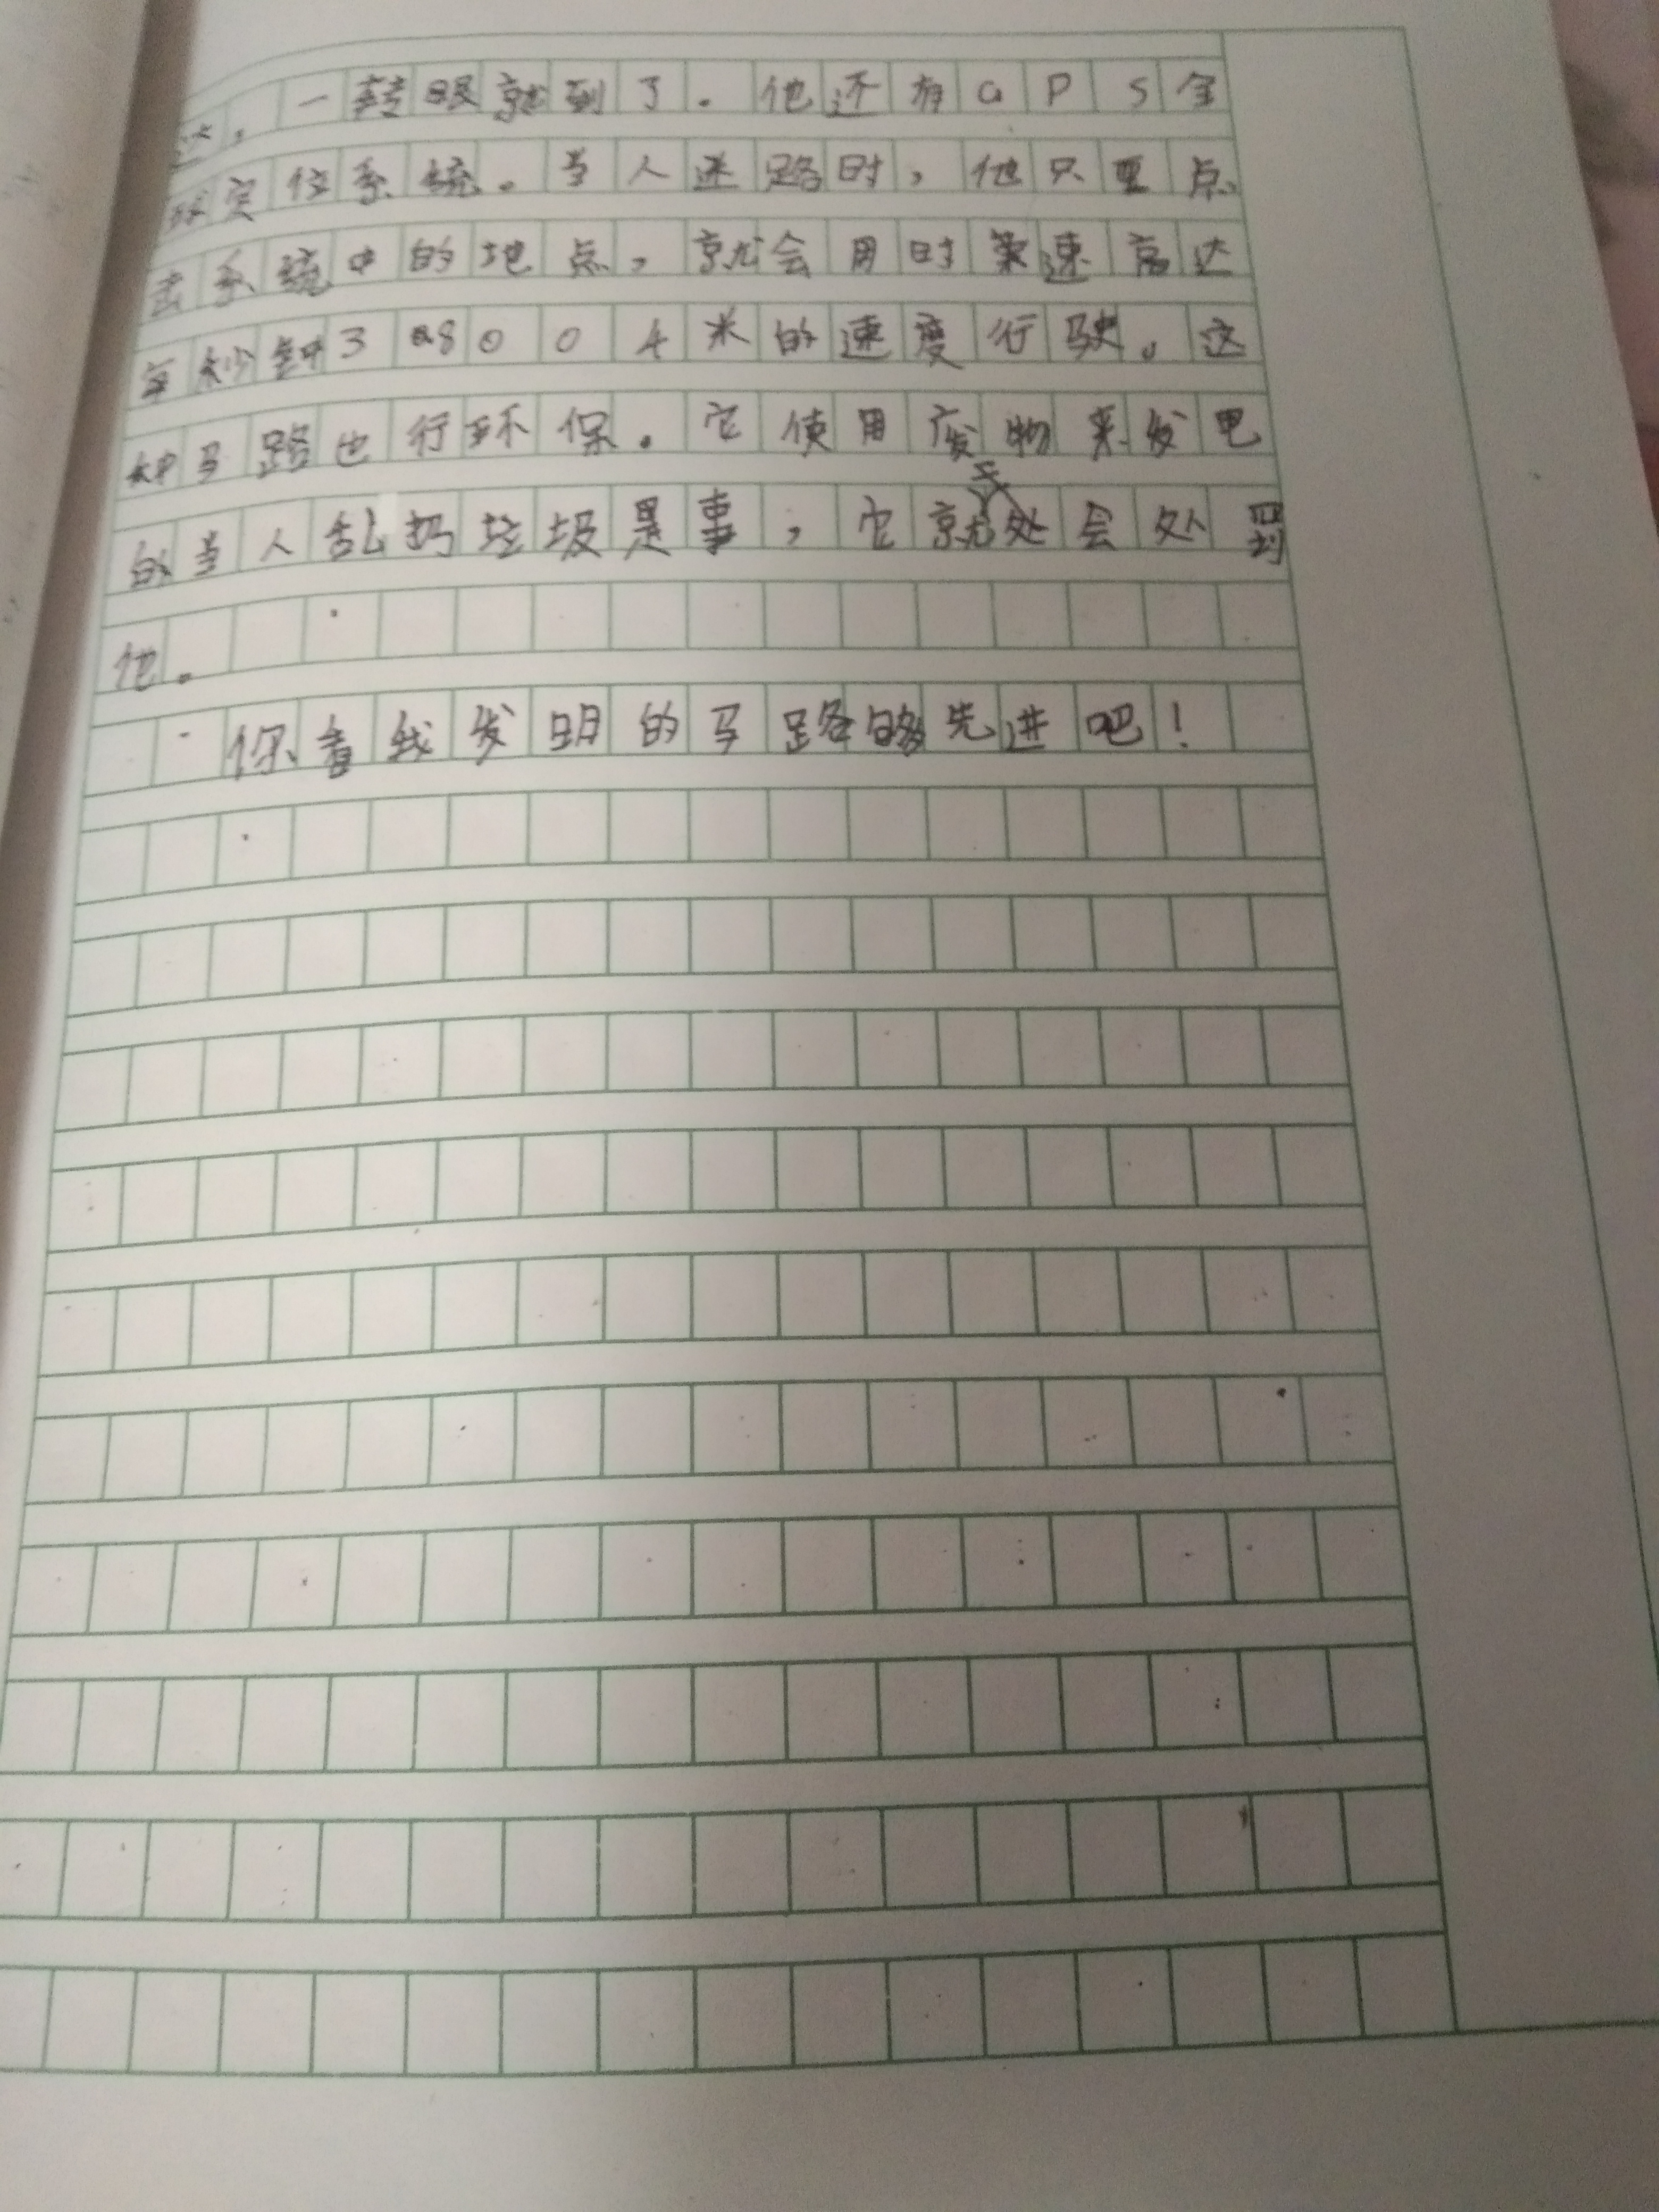 ，一转眼就到了。他还有GPS全
球定位系统。当人迷路时，他只要点
击系统中的地点，就会用时速高达
每秒钟38004米的速度行驶。这
种马路也行环保。它使用废物来发电
的当人乱扔垃圾是事，它就会处罚
他。
你看我发明的马路够先进吧！